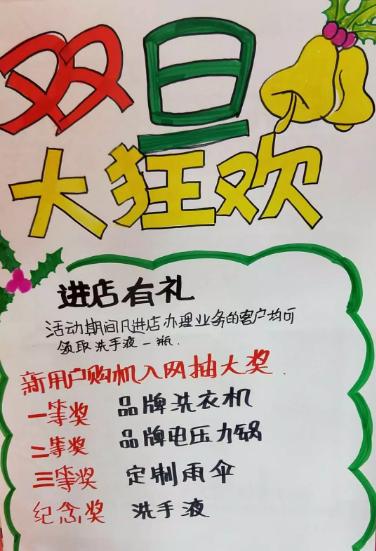 双旦
大狂欢
进店有礼
活动期间凡进店办理业务的客户均可
领取洗手液一瓶.
新用户购机入网抽大奖.
一等奖 品牌洗衣机
二等奖 品牌电压力锅
三等奖 定制雨伞
纪念奖 洗手液